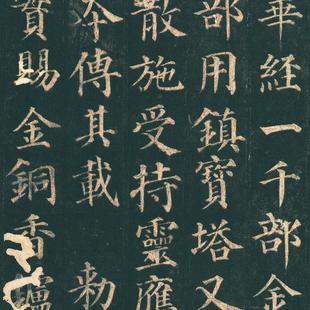 華経一千部金
部用鎮寶塔又
散施受持靈應
夲傳其載 勅
實賜金銅香鑪